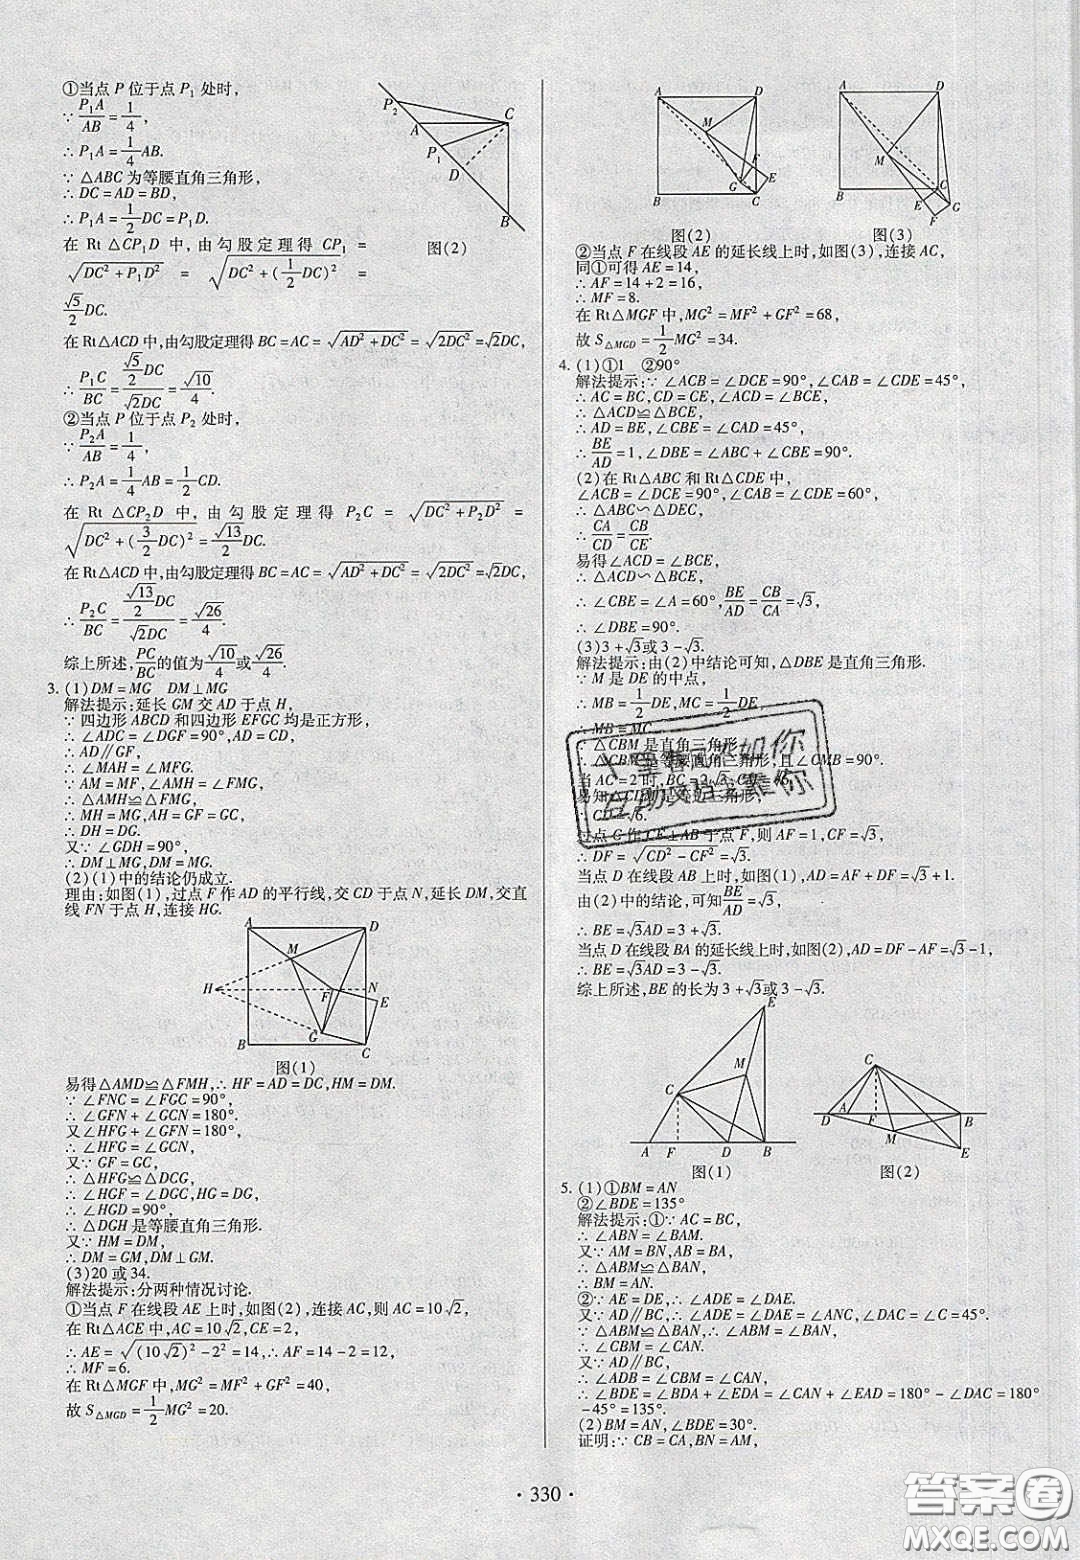 ①当点P位于点P₁处时,
∵P₁A/AB=1/4,
∴P₁A=1/4AB.
∵△ABC为等腰直角三角形,
∴DC=AD=BD,
∴P₁A=1/2DC=P₁D.
在Rt△CP₁D中,由勾股定理得CP₁=
√(DC²+P₁D²)=√(DC²+(1/2DC)²)=
√5/2DC.
在Rt△ACD中,由勾股定理得BC=AC=√(AD²+DC²)=√(2DC²)=√2DC,
∴P₁C/BC=(√5/2DC)/(√2DC)=√10/4.
②当点P位于点P₂处时,
∵P₂A/AB=1/4,
∴P₂A=1/4AB=1/2CD.
在Rt△CP₂D中,由勾股定理得P₂C=√(DC²+P₂D²)=
√(DC²+(3/2DC)²)=√13/2DC.
在Rt△ACD中,由勾股定理得BC=AC=√(AD²+DC²)=√(2DC²)=√2DC,
∴P₂C/BC=(√13/2DC)/(√2DC)=√26/4.
综上所述,PC/BC的值为√10/4或√26/4.
3.(1)DM=MG DM⊥MG
解法提示:延长GM交AD于点H,
∵四边形ABCD和四边形EFGC均是正方形,
∴∠ADC=∠DGF=90°,AD=CD,
∴AD∥GF,
∴∠MAH=∠MFG.
∵AM=MF,∠AMH=∠FMG,
∴△AMH≌△FMG,
∴MH=MG,AH=GF=GC,
∴DH=DG.
又∵∠GDH=90°,
∴DM⊥MG,DM=MG.
(2)(1)中的结论仍成立.
理由:如图(1),过点F作AD的平行线,交CD于点N,延长DM,交直
线FN于点H,连接HG.
A D M H F N E G B C
图(1)
易得△AMD≌△FMH,∴HF=AD=DC,HM=DM.
∵∠FNC=∠FGC=90°,
∴∠GFN+∠GCN=180°.
又∠HFG+∠GFN=180°,
∴∠HFG=∠GCN.
又∵GF=GC,
∴△HFG≌△DCG,
∴∠HGF=∠DGC,HG=DG,
∴∠HGD=90°,
∴△DGH是等腰直角三角形.
又∵HM=DM,
∴DM=GM,DM⊥GM.
(3)20或34.
解法提示:分两种情况讨论.
①当点F在线段AE上时,如图(2),连接AC,则AC=10√2,
在Rt△ACE中,AC=10√2,CE=2,
∴AE=√((10√2)²-2²)=14,∴AF=14-2=12,
∴MF=6.
在Rt△MGF中,MG²=MF²+GF²=40,
故S△MGD=1/2MG²=20.
P₂ A C P₁ D B
图(2)
A D M F E G B C
图(2)
A D M C E G B F
图(3)
②当点F在线段AE的延长线上时,如图(3),连接AC,
同①可得AE=14,
∴AF=14+2=16,
∴MF=8.
在Rt△MGF中,MG²=MF²+GF²=68,
故S△MGD=1/2MG²=34.
4.(1)①1 ②90°
解法提示:∵∠ACB=∠DCE=90°,∠CAB=∠CDE=45°,
∴AC=BC,CD=CE,∠ACD=∠BCE,
∴△ACD≌△BCE,
∴AD=BE,∠CBE=∠CAD=45°,
∴BE/AD=1,∠DBE=∠ABC+∠CBE=90°.
(2)在Rt△ABC和Rt△CDE中,
∠ACB=∠DCE=90°,∠CAB=∠CDE=60°,
∴△ABC∽△DEC,
∴CA/CD=CB/CE.
易得∠ACD=∠BCE,
∴△ACD∽△BCE,
∴∠CBE=∠A=60°,BE/AD=CB/CA=√3,
∴∠DBE=90°.
(3)3+√3或3-√3.
解法提示:由(2)中结论可知,△DBE是直角三角形.
∵M是DE的中点,
∴MB=1/2DE,MC=1/2DE,
∴MB=MC
∴△CBM是直角三角形
∴△CBM是等腰直角三角形,且∠CMB=90°.
当AC=2时,BC=2√3
易知△CD 等边三角形,
CD=√6.
过点C作CF⊥AB于点F,则AF=1,CF=√3,
∴DF=√(CD²-CF²)=√3.
当点D在线段AB上时,如图(1),AD=AF+DF=√3+1.
由(2)中的结论,可知BE/AD=√3,
∴BE=√3AD=3+√3.
当点D在线段BA的延长线上时,如图(2),AD=DF-AF=√3-1,
∴BE=√3AD=3-√3.
综上所述,BE的长为3+√3或3-√3.
E M C A F D B
图(1)
C D A F M B E
图(2)
5.(1)①BM=AN
②∠BDE=135°
解法提示:①∵AC=BC,
∴∠ABN=∠BAM.
又∵AM=BN,AB=BA,
∴△BAM≌△ABN,
∴BM=AN.
②∵AE=DE,∴∠ADE=∠DAE.
又∵AD∥BC,∴∠ADE=∠DAE=∠ANC,∠DAC=∠C=45°.
∵△ABM≌△BAN,∴∠ABM=∠BAN,
∴∠CBM=∠CAN.
又∵AD∥BC,
∴∠ADB=∠CBM=∠CAN,
∴∠BDE=∠BDA+∠EDA=∠CAN+∠EAD=180°-∠DAC=180°
-45°=135°.
(2)BM=AN,∠BDE=30°.
证明:∵CB=CA,BN=AM,
·330·
答案圈
MXQE.COM